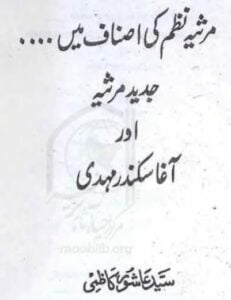 مرثیہ نظم کی اصناف میں ....
جدید مرثیہ
اور
آغا سکندر مہدی
maablib.org
سید عاشور کاظمی